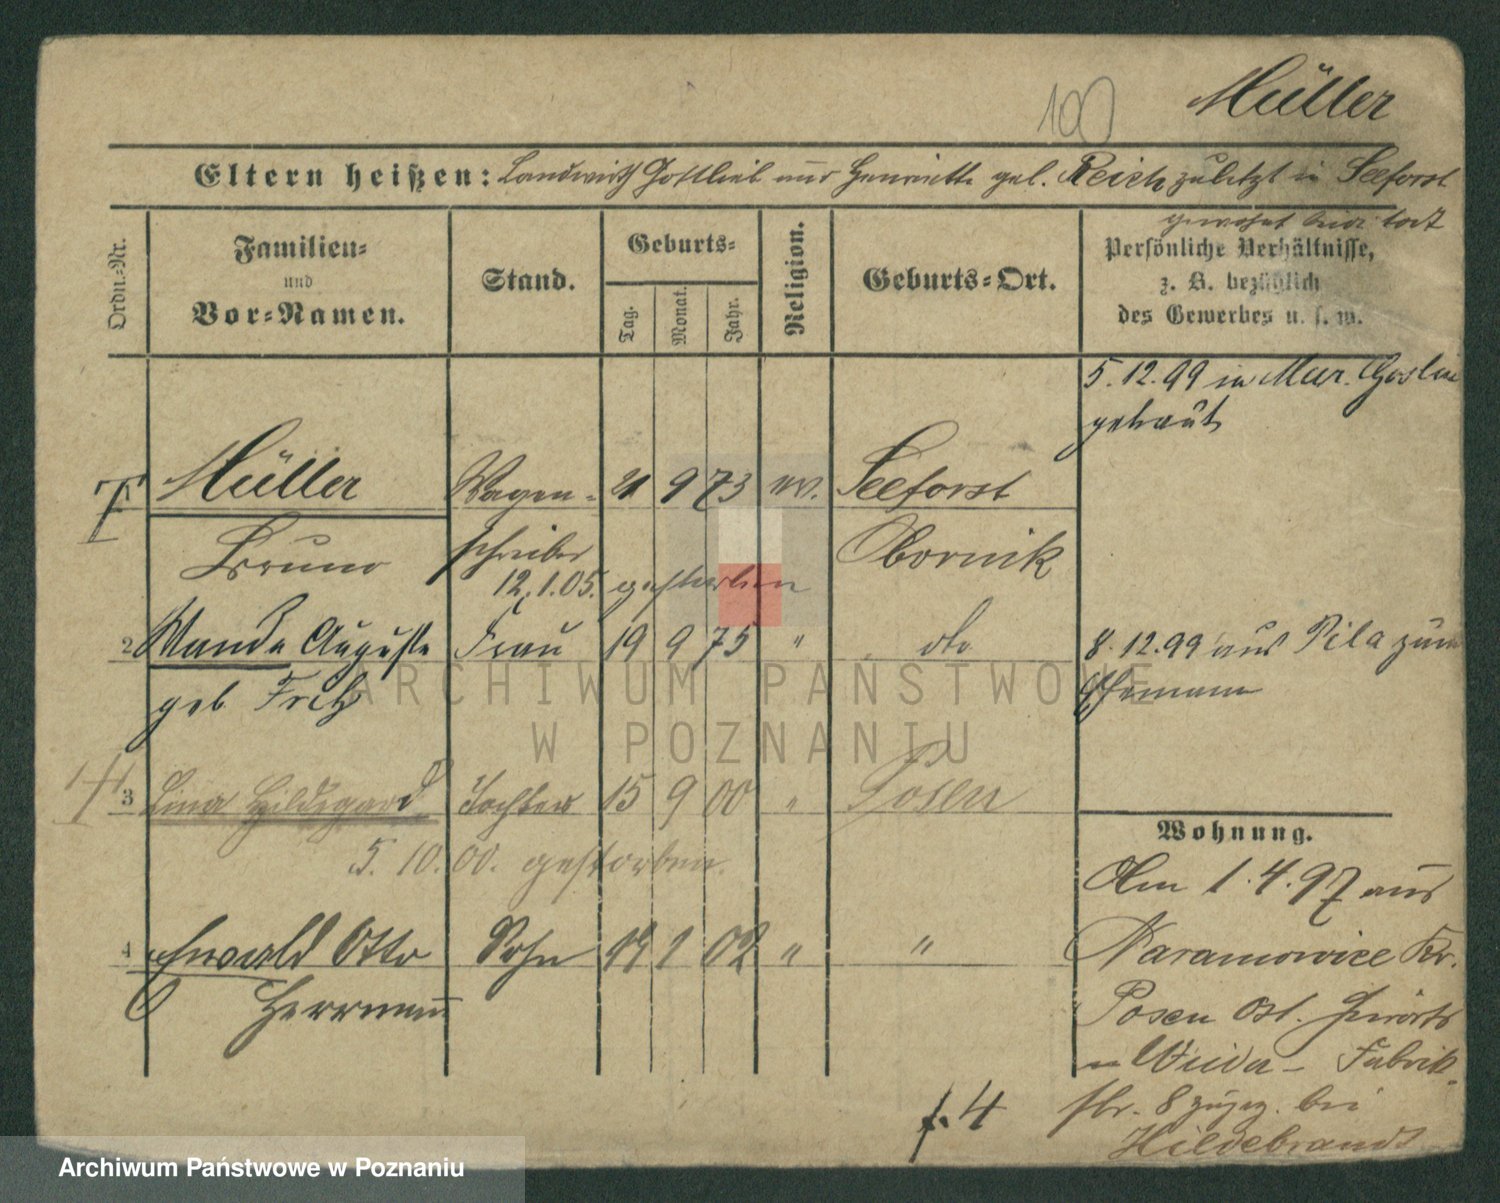 Müller
100
Eltern heißen: Landwirth Gottlieb und Henriette geb. Reich zuletzt in Seeforst
gewohnt beide todt
Ordn.-Nr.
Familien-
und
Vor-Namen.
Stand.
Geburts-
Tag.
Monat.
Jahr.
Religion.
Geburts-Ort.
Persönliche Verhältnisse,
z. B. bezüglich
des Gewerbes u. s. w.
5.12.99 in Mur. Goslin
getraut
1 Müller Wagen- 21 9 73 ev. Seeforst
Bruno schreiber Obornik
12.1.05. gestorben
2 Wanda Auguste Frau 19 9 75 " dto
geb
8.12.99 aus Pila zum
Ehemann
3 Lina Hildegard Tochter 15 9 00 " Posen
5. 10. 00. gestorben.
4 Ewald Otto Sohn 1 02 " "
Herrmann
Wohnung.
Am 1.4.97 aus
Naramowice Kr.
Posen Ost.
n Wilda - Fabrik-
str. 8 zugez. bei
Hildebrandt
f. 4
ARCHIWUM PAŃSTWOWE
W POZNANIU
Archiwum Państwowe w Poznaniu